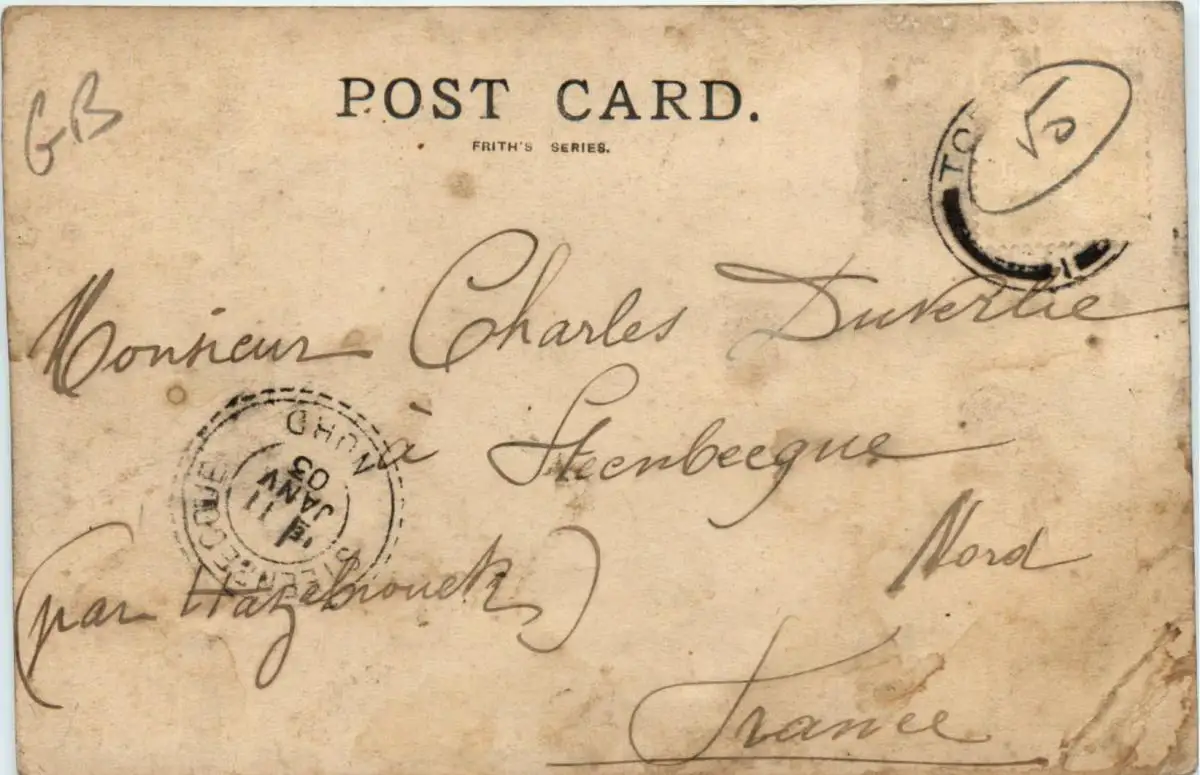 POST CARD.
FRITH'S SERIES.
GB
50
TO
1
Monsieur Charles Duverlie
à Steenbecque
Nord
(par Hazebrouck)
France
STEENBECQUE
NORD
11
JANV
03